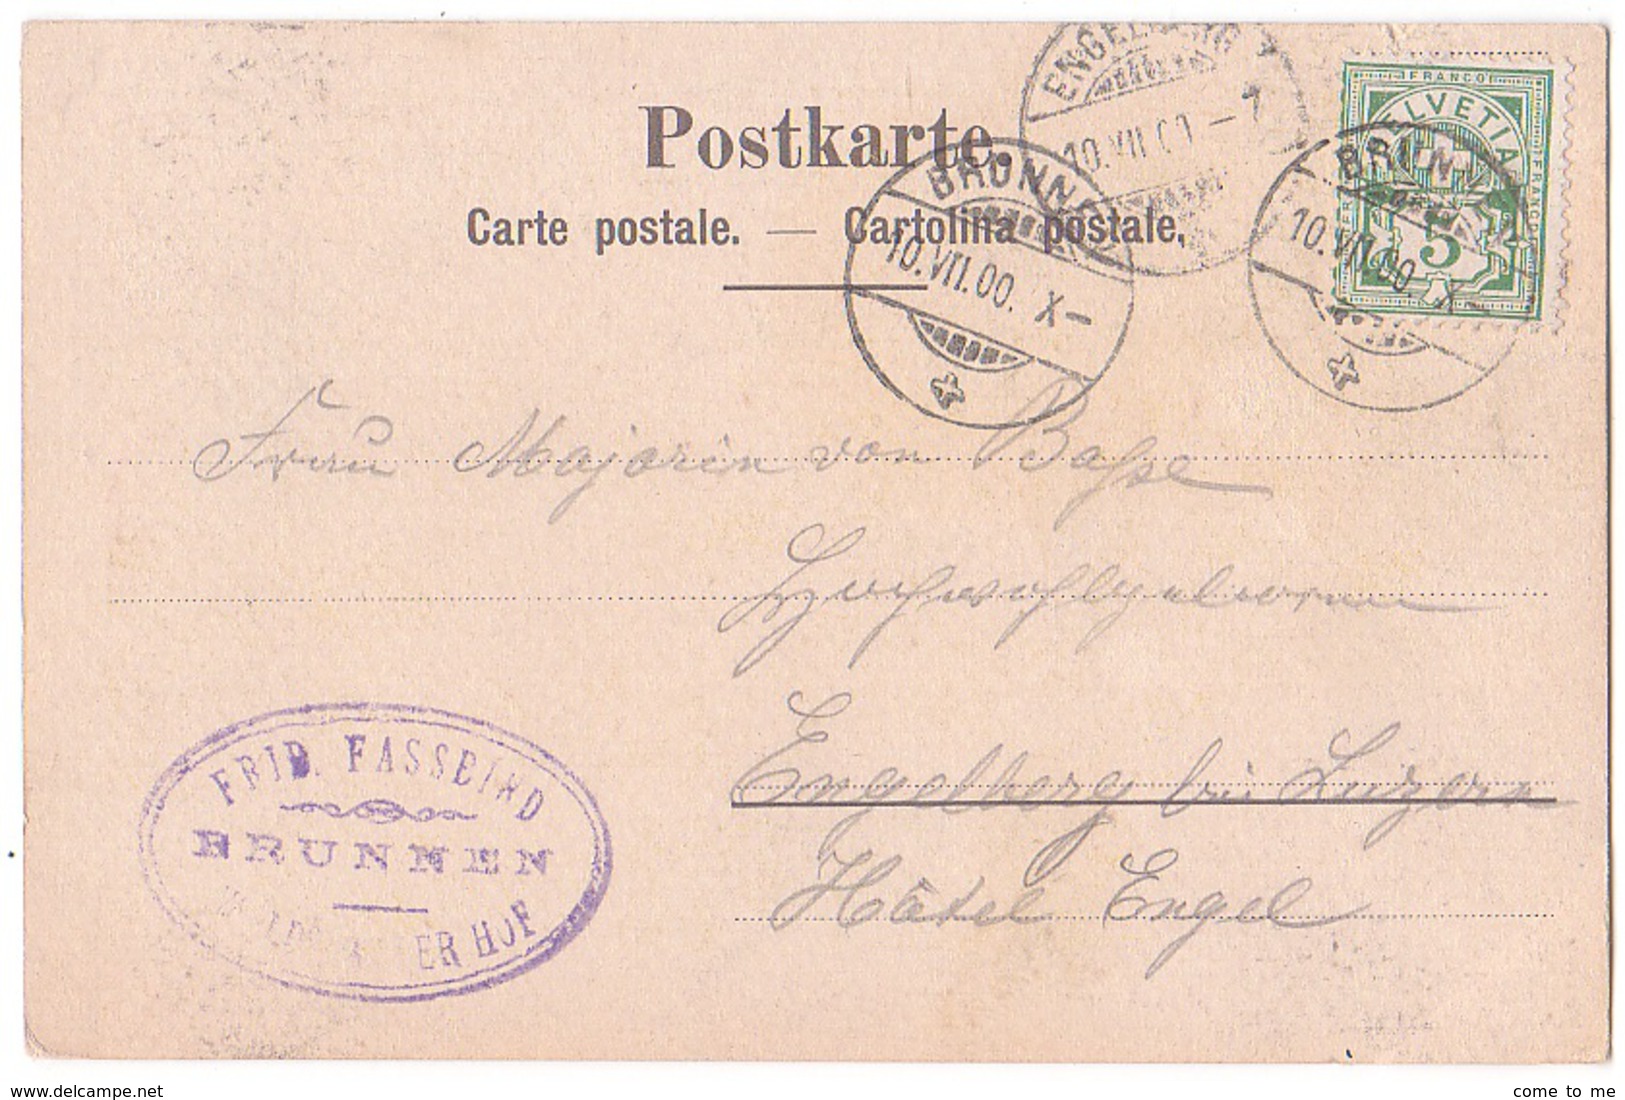 Postkarte.
Carte postale. — Cartolina postale.
ENGELBERG
10.VII.00.–7
BRUNNEN
10.VII.00. X–
BRUNNEN
10.VII.00. X–
FRANCO
HELVETIA
FRANCO
FRANCO
5
Frau Majorin von Basse
Hochwohlgeboren
Engelberg bei Luzern
Hôtel Engel
FRID. FASSBIND
BRUNNEN
HOF
delcampe.net
come to me